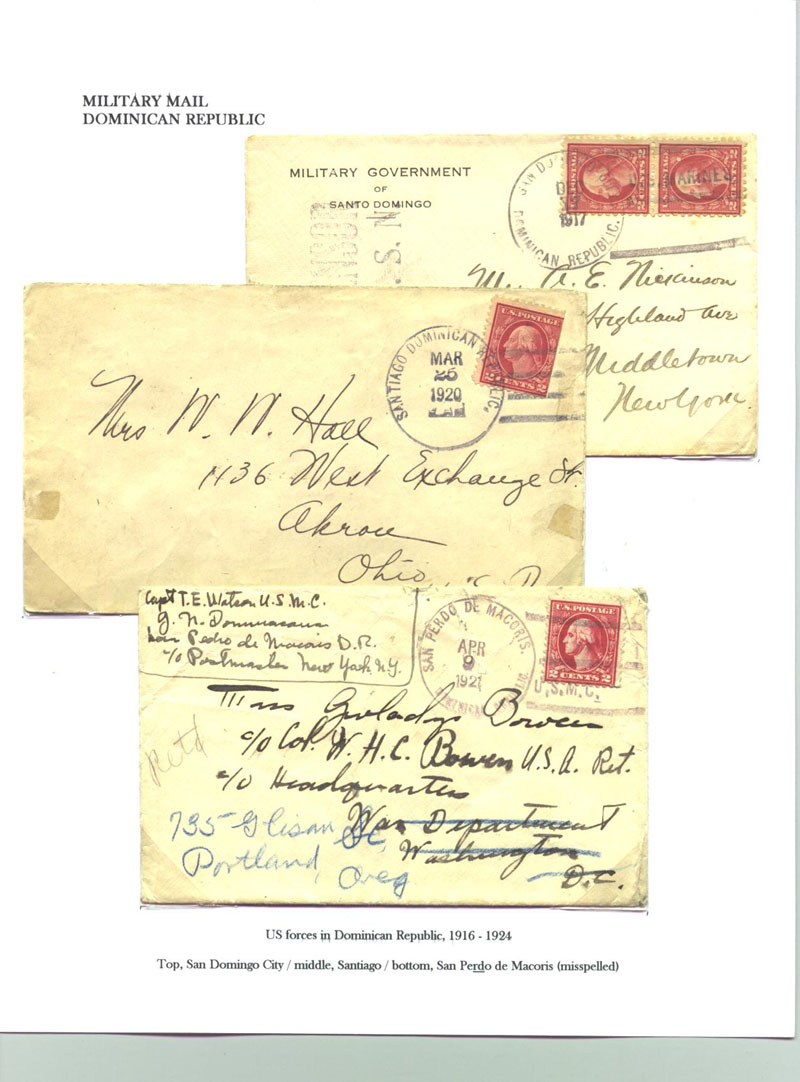 MILITARY MAIL
DOMINICAN REPUBLIC
MILITARY GOVERNMENT
OF
SANTO DOMINGO
U. S. N
SAN DO
DOMINICAN REPUBLIC.
1917
MARINES
2 CENTS 2
2 CENTS 2
A. E. Nickinson
Highland Ave
Middletown
New York.
SANTIAGO DOMINICAN REPUBLIC.
MAR
25
1920
U.S. POSTAGE
2 CENTS 2
Mrs W. W. Hall
1436 West Exchange St.
Akron
Ohio
Capt T. E. Watson U.S.M.C.
G. N. Dominicana
San Pedro de Macoris D.R.
c/o Postmaster New York N.Y.
SAN PERDO DE MACORIS.
APR
9
1921
U.S. POSTAGE
2 CENTS 2
U.S.M.C.
Miss Bowen
c/o Col. W. H. C. Bowen U.S.A. Ret.
c/o Headquarters
War Department
Washington
D.C.
Retd
735 Glisan St,
Portland,
Oreg
US forces in Dominican Republic, 1916 - 1924
Top, San Domingo City / middle, Santiago / bottom, San Perdo de Macoris (misspelled)